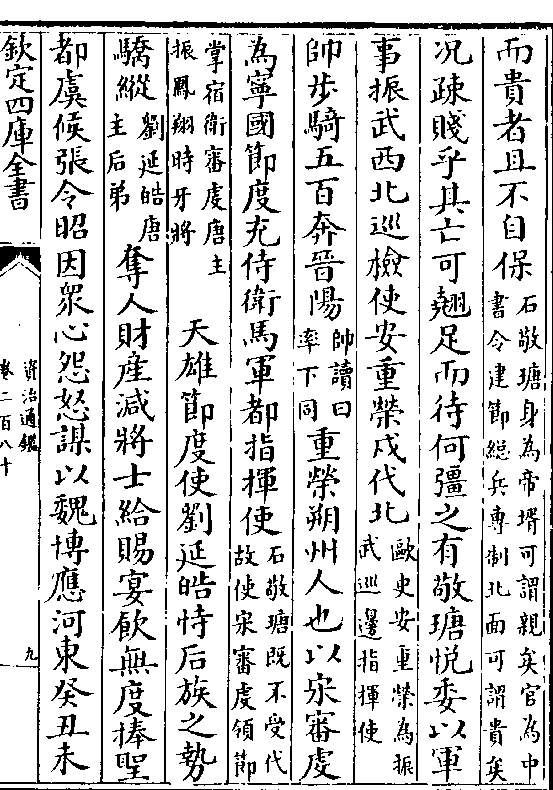 而貴者且不自保石敬瑭身為帝壻可謂親矣官為中書令建節緫兵專制北面可謂貴矣
况疎賤乎其亡可翹足而待何彊之有敬瑭悅委以軍
事振武西北巡檢使安重榮戍代北歐史安重榮為振武巡邊指揮使
帥步騎五百奔晉陽帥讀曰率下同重榮朔州人也以宋審虔
為寧國節度充侍衛馬軍都指揮使石敬瑭既不受代故使宋審虔領節
掌宿衛審虔唐主振鳳翔時牙將天雄節度使劉延皓恃后族之勢
驕縱劉延皓唐主后弟奪人財産減將士給賜宴飲無度捧聖
都虞候張令昭因衆心怨怒謀以魏博應河東癸丑未
欽定四庫全書
資治通鑑
卷二百八十
九